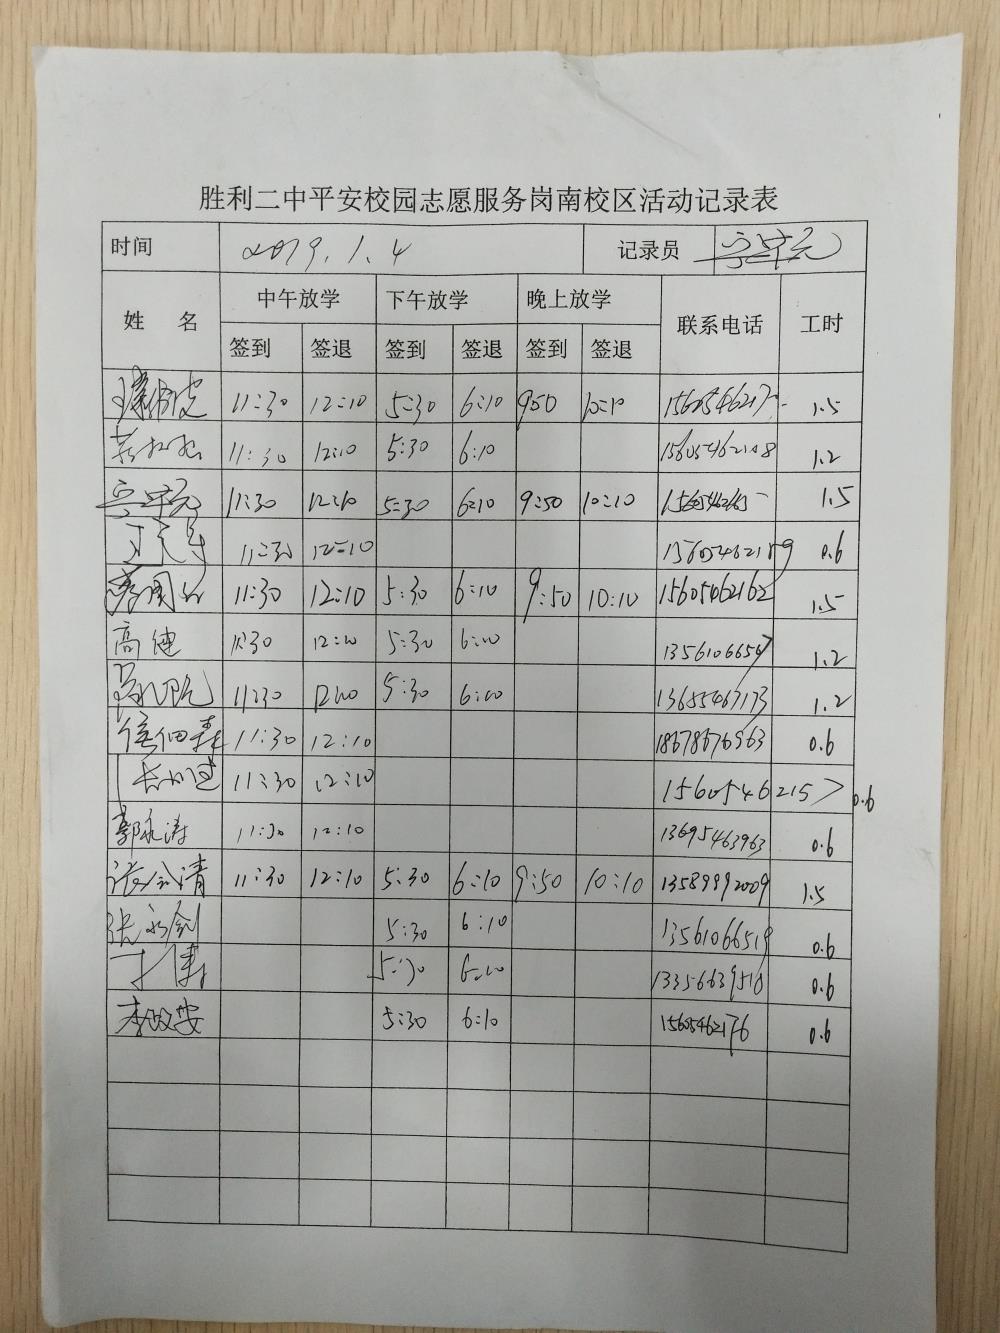 胜利二中平安校园志愿服务岗南校区活动记录表
时间 2019.1.4 记录员
姓 名 中午放学 下午放学 晚上放学 联系电话 工时
签到 签退 签到 签退 签到 签退
11:30 12:10 5:30 6:10 9:50 10:10 1.5
11:30 12:10 5:30 6:10 15605462108 1.2
11:30 12:10 5:30 6:10 9:50 10:10 1.5
11:30 12:10 15605462189 0.6
11:30 12:10 5:30 6:10 9:50 10:10 15605462162 1.5
高健 11:30 12:10 5:30 6:10 13561066507 1.2
11:30 12:10 5:30 6:10 13655467173 1.2
11:30 12:10 18678676963 0.6
11:30 12:10 15605462157 0.6
郭永涛 11:30 12:10 13695463963 0.6
张公清 11:30 12:10 5:30 6:10 9:50 10:10 13589992009 1.5
张永剑 5:30 6:10 13561066519 0.6
5:30 6:10 13356639510 0.6
李政安 5:30 6:10 15605462176 0.6